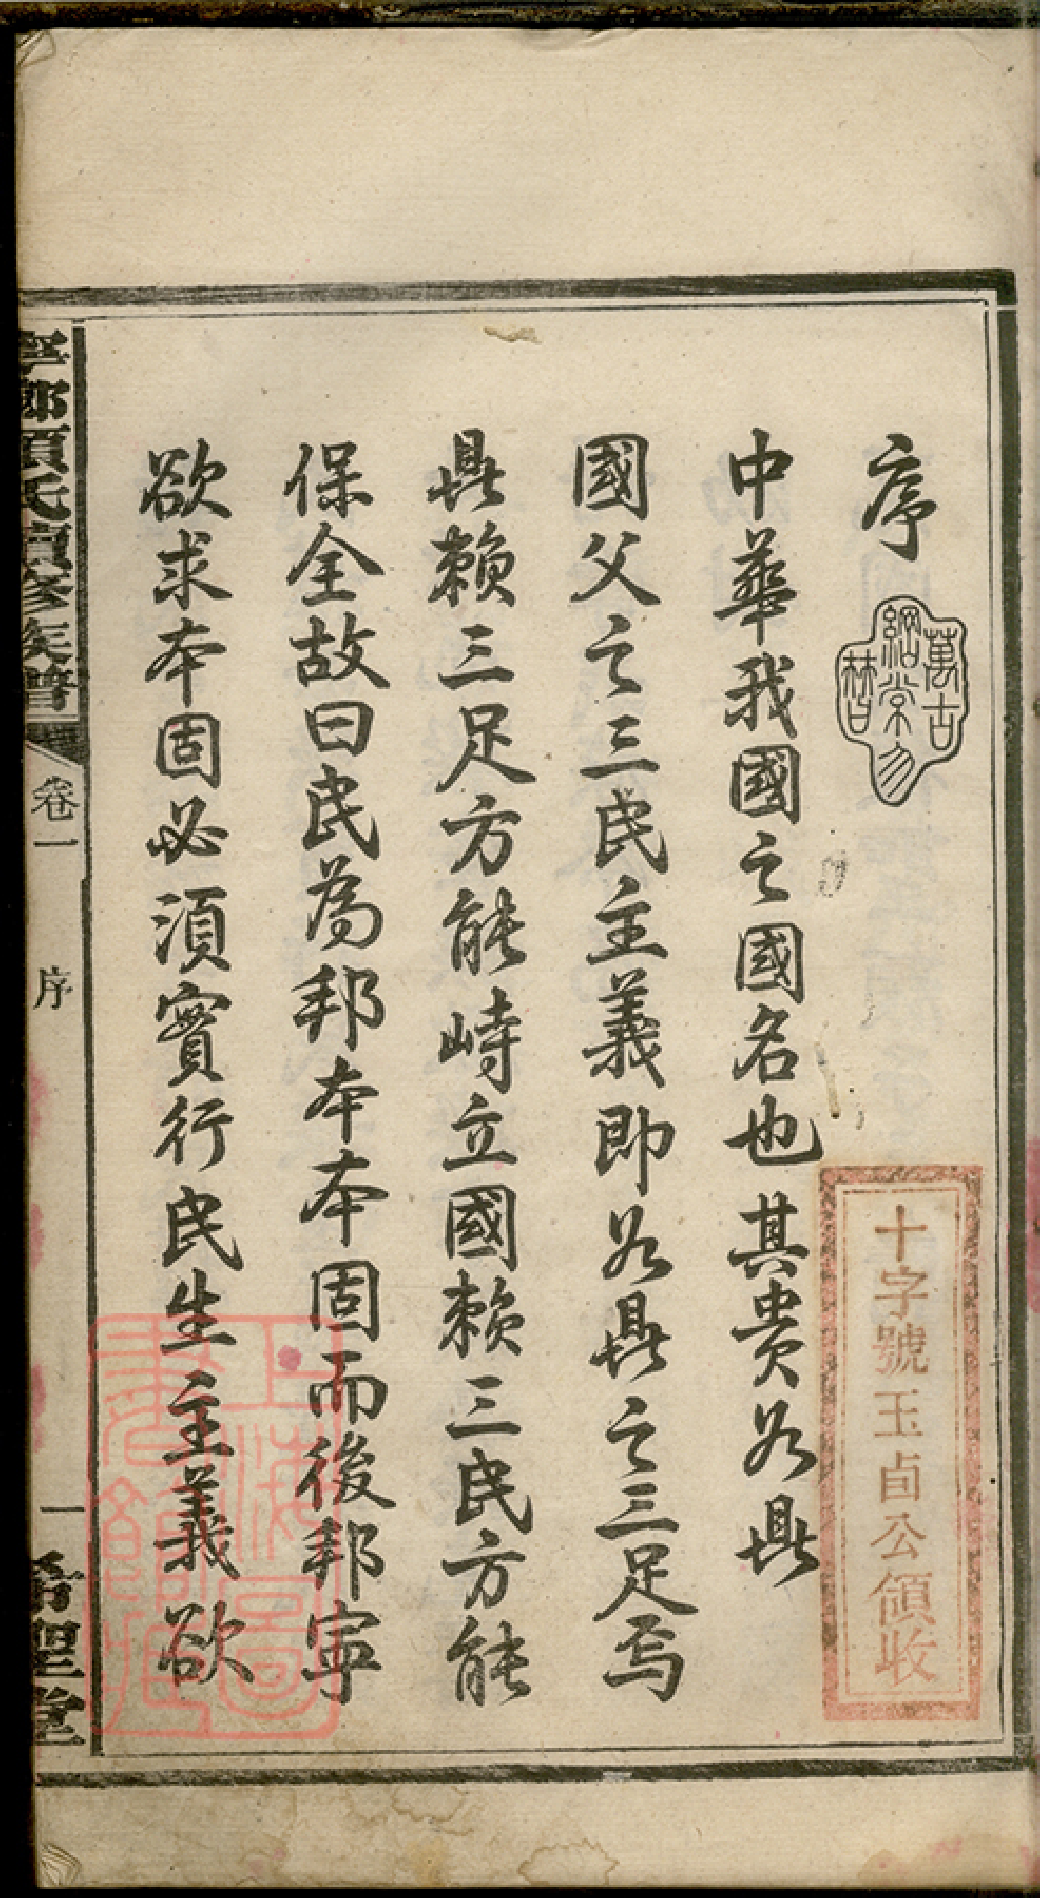 序
萬古
綱常勿
替
中華我國之國名也其貴如鼎
國父之三民主義即如鼎之三足焉
鼎賴三足方能峙立國賴三民方能
保全故曰民為邦本本固而後邦寧
欲求本固必須實行民生主義欲
十字號玉卣公領收
上海圖
書館藏
寧鄉項氏續修族譜
卷一
序
一
希聖堂